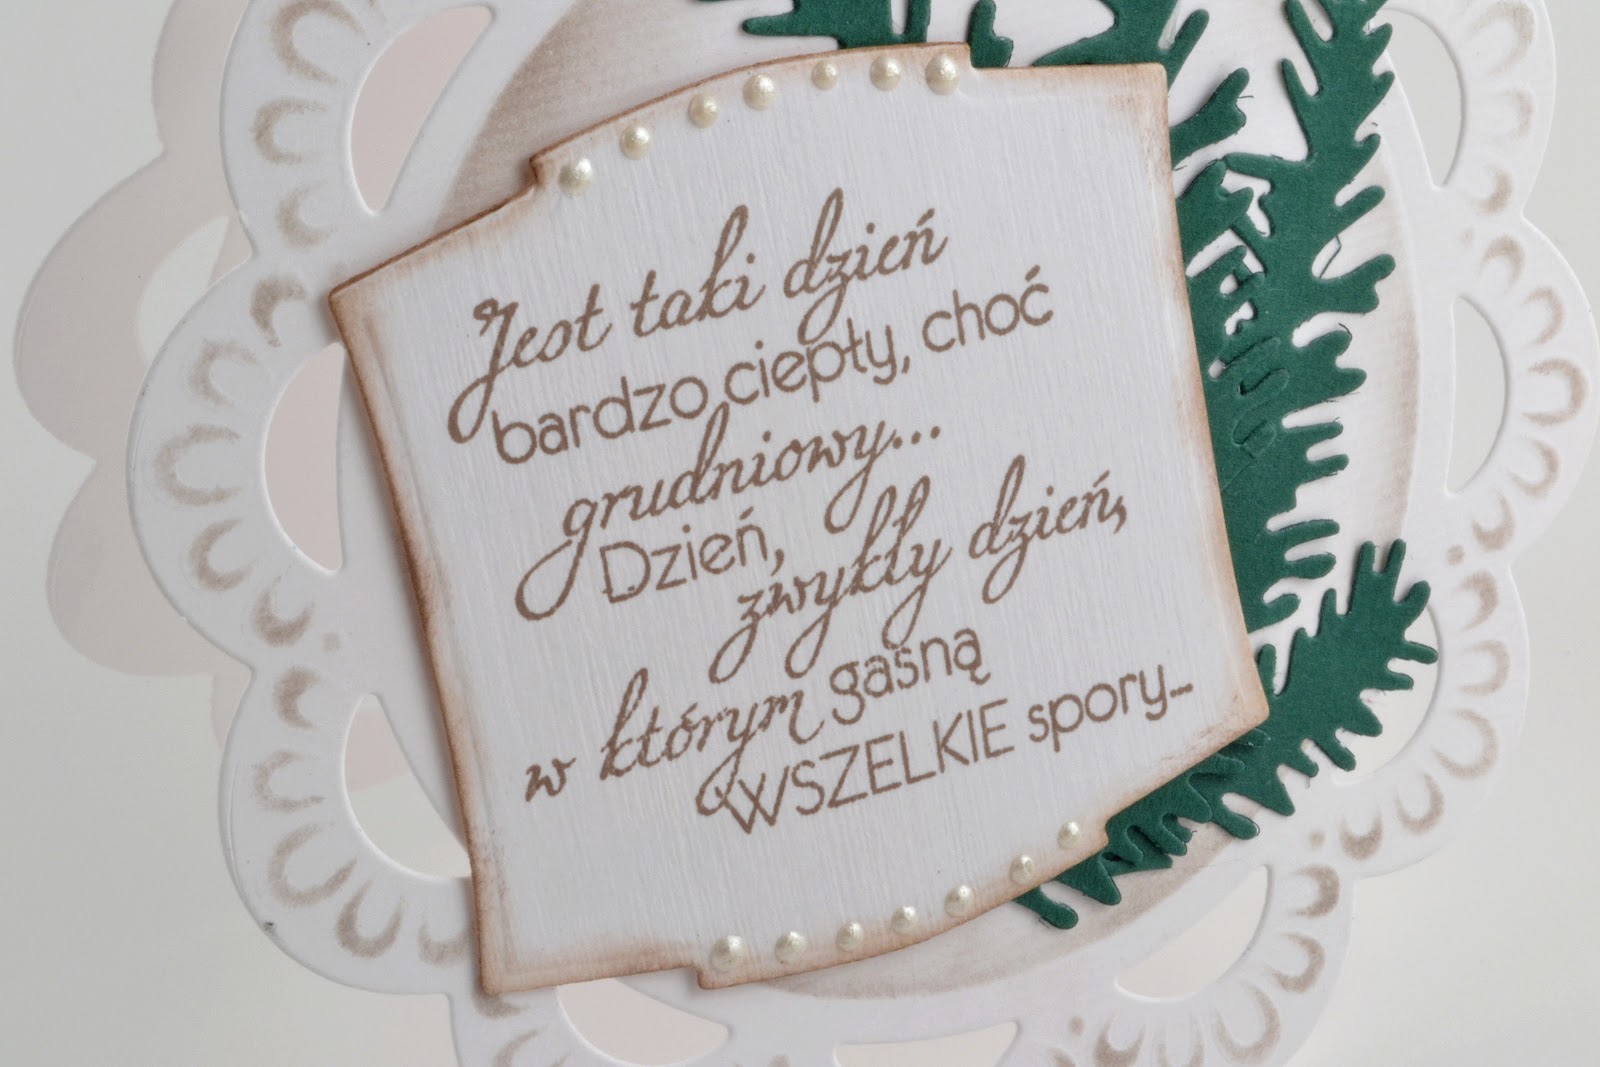 Jest taki dzień
bardzo ciepły, choć
grudniowy...
Dzień, zwykły dzień,
w którym gaśną
WSZELKIE spory...